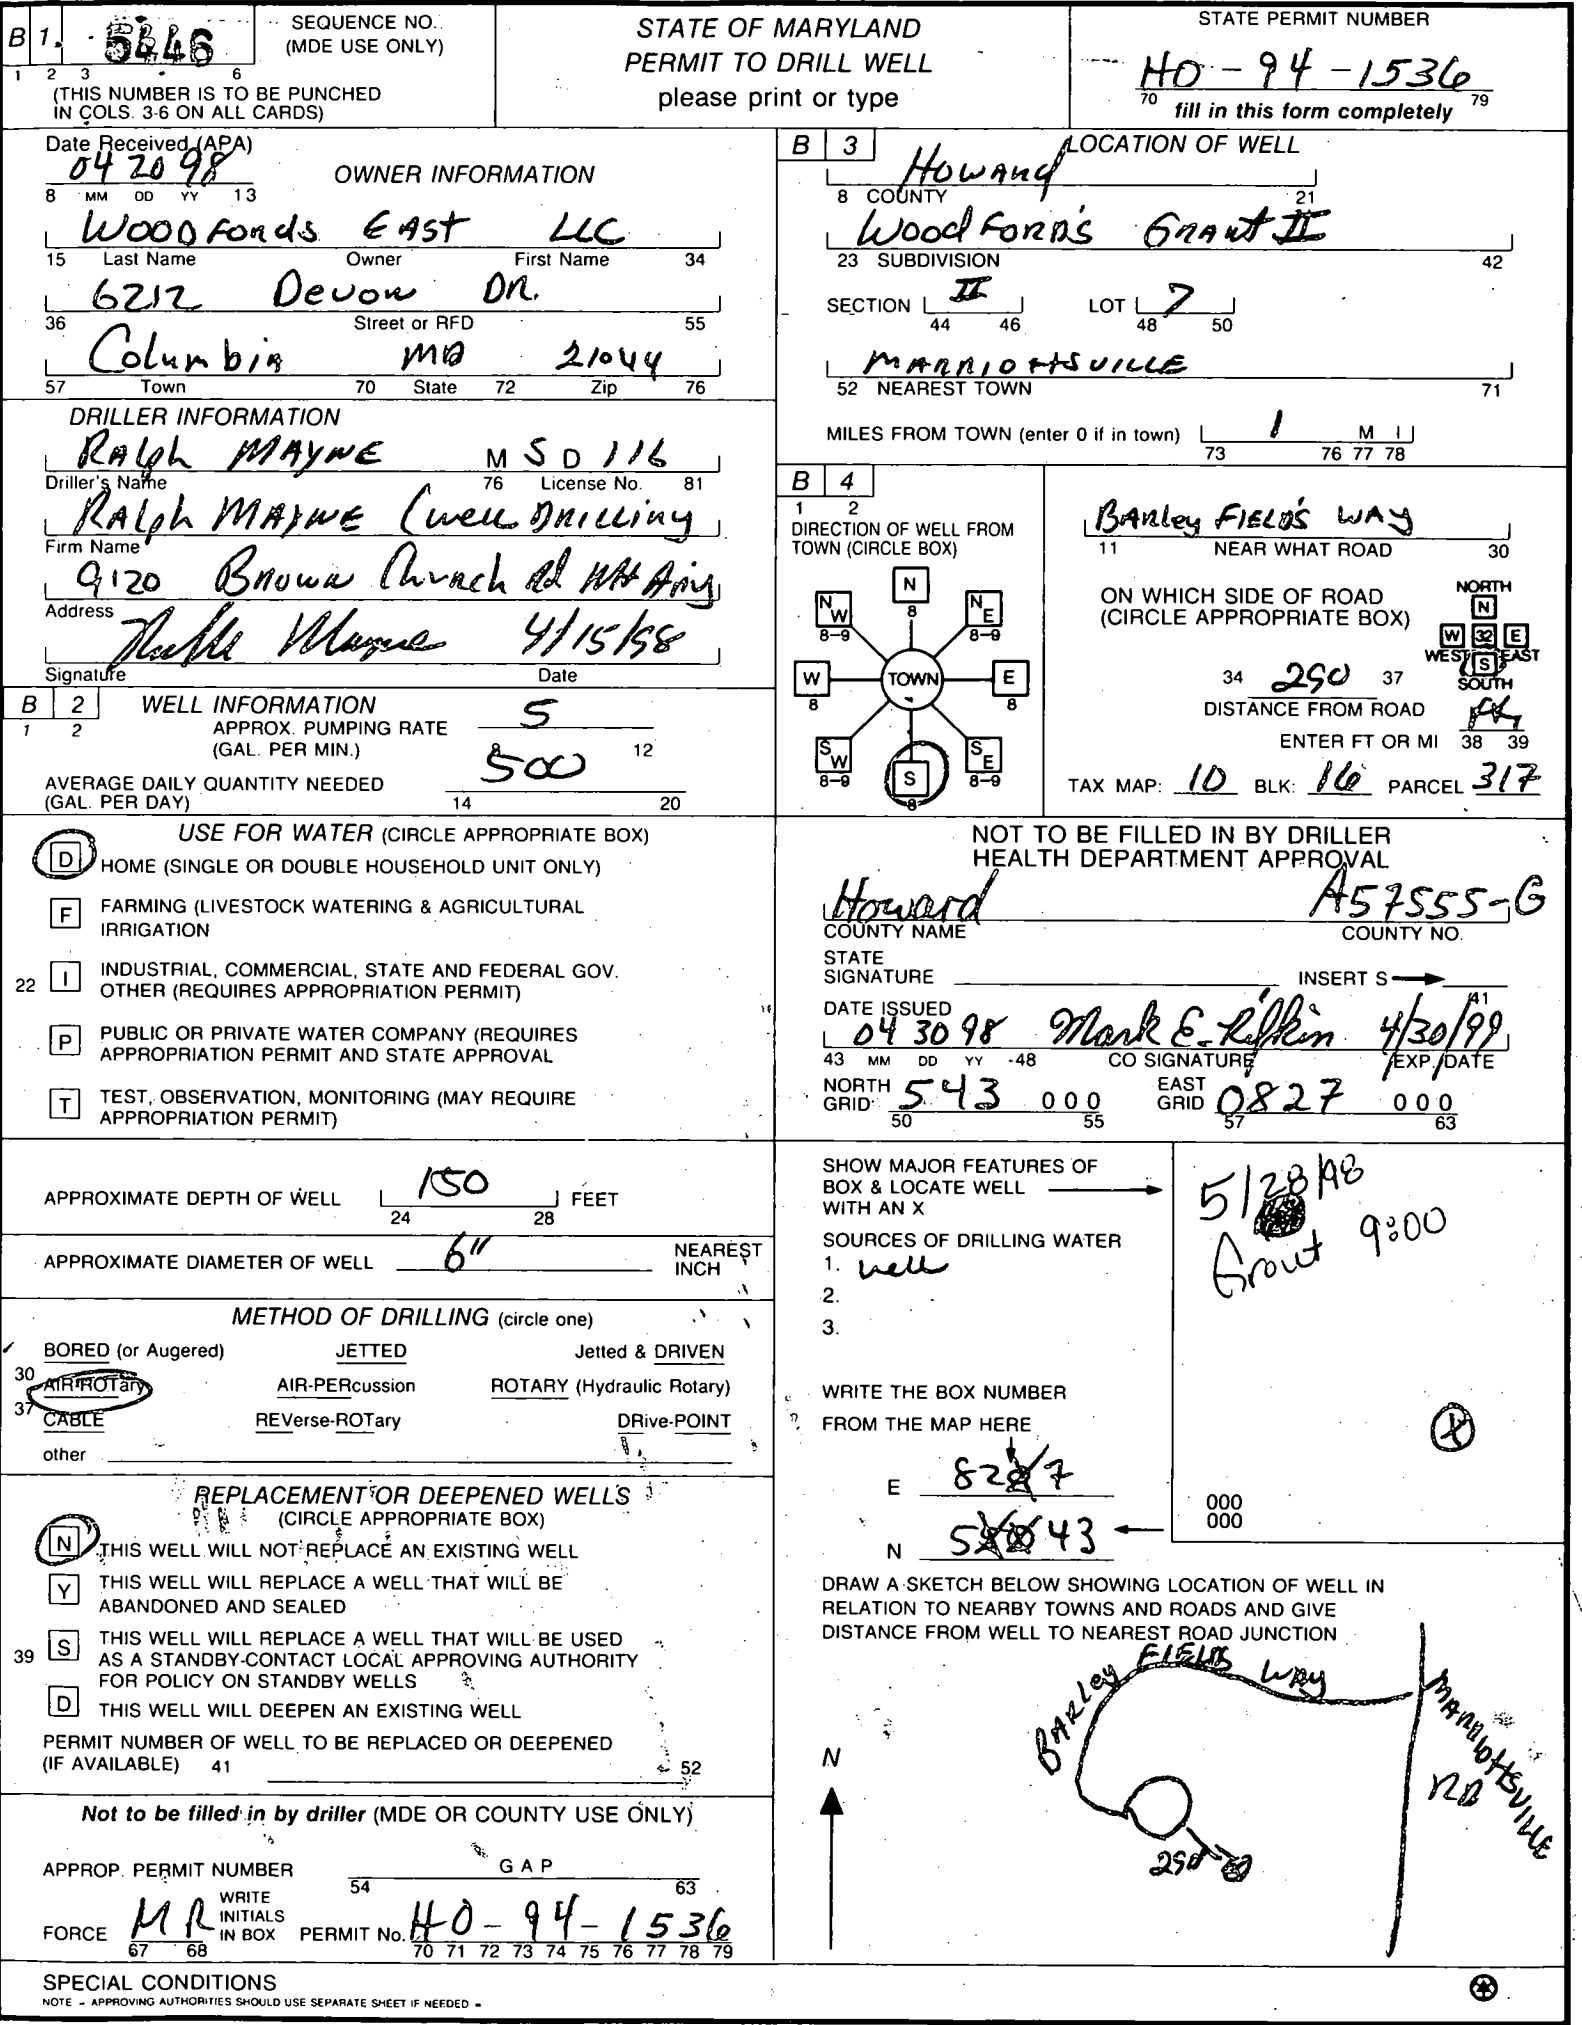 B 1.
SEQUENCE NO.
(MDE USE ONLY)
1 2 3 6
(THIS NUMBER IS TO BE PUNCHED
IN COLS. 3-6 ON ALL CARDS)
STATE OF MARYLAND
PERMIT TO DRILL WELL
please print or type
STATE PERMIT NUMBER
HO - 94 - 1536
70 79
fill in this form completely
Date Received (APA)
04 20 98
8 MM DD YY 13
OWNER INFORMATION
Woodfords East LLC
15 Last Name Owner First Name 34
6212 Devon DR.
36 Street or RFD 55
Columbia MD 21044
57 Town 70 State 72 Zip 76
DRILLER INFORMATION
Ralph MAYNE M S D 116
Driller's Name 76 License No. 81
Ralph MAYNE Well Drilling
Firm Name
9120 Brown Church Rd Mt Airy
Address
Ralph Mayne 4/15/98
Signature Date
B 2 WELL INFORMATION
1 2
APPROX. PUMPING RATE 5
(GAL. PER MIN.) 8 12
AVERAGE DAILY QUANTITY NEEDED 500
(GAL. PER DAY) 14 20
USE FOR WATER (CIRCLE APPROPRIATE BOX)
D HOME (SINGLE OR DOUBLE HOUSEHOLD UNIT ONLY)
F FARMING (LIVESTOCK WATERING & AGRICULTURAL
IRRIGATION
22 I INDUSTRIAL, COMMERCIAL, STATE AND FEDERAL GOV.
OTHER (REQUIRES APPROPRIATION PERMIT)
P PUBLIC OR PRIVATE WATER COMPANY (REQUIRES
APPROPRIATION PERMIT AND STATE APPROVAL
T TEST, OBSERVATION, MONITORING (MAY REQUIRE
APPROPRIATION PERMIT)
APPROXIMATE DEPTH OF WELL 150 FEET
24 28
APPROXIMATE DIAMETER OF WELL 6" NEAREST
INCH
METHOD OF DRILLING (circle one)
BORED (or Augered) JETTED Jetted & DRIVEN
30 AIR-ROTary AIR-PERcussion ROTARY (Hydraulic Rotary)
37 CABLE REVerse-ROTary DRive-POINT
other
REPLACEMENT OR DEEPENED WELLS
(CIRCLE APPROPRIATE BOX)
N THIS WELL WILL NOT REPLACE AN EXISTING WELL
Y THIS WELL WILL REPLACE A WELL THAT WILL BE
ABANDONED AND SEALED
39 S THIS WELL WILL REPLACE A WELL THAT WILL BE USED
AS A STANDBY-CONTACT LOCAL APPROVING AUTHORITY
FOR POLICY ON STANDBY WELLS
D THIS WELL WILL DEEPEN AN EXISTING WELL
PERMIT NUMBER OF WELL TO BE REPLACED OR DEEPENED
(IF AVAILABLE) 41 52
Not to be filled in by driller (MDE OR COUNTY USE ONLY)
APPROP. PERMIT NUMBER G A P
54 63
FORCE MR WRITE
INITIALS
IN BOX PERMIT No. HO-94-1536
67 68 70 71 72 73 74 75 76 77 78 79
SPECIAL CONDITIONS
NOTE - APPROVING AUTHORITIES SHOULD USE SEPARATE SHEET IF NEEDED -
B 3 LOCATION OF WELL
Howard
8 COUNTY 21
Woodford's Grant II
23 SUBDIVISION 42
SECTION II LOT 7
44 46 48 50
MARRIOTTSVILLE
52 NEAREST TOWN 71
MILES FROM TOWN (enter 0 if in town) 1 M I
73 76 77 78
B 4
1 2
DIRECTION OF WELL FROM
TOWN (CIRCLE BOX)
N
8
NW
8-9
NE
8-9
W
8
TOWN
E
8
SW
8-9
S
8
SE
8-9
Barley FIELD'S WAY
11 NEAR WHAT ROAD 30
ON WHICH SIDE OF ROAD
(CIRCLE APPROPRIATE BOX)
NORTH
N
W 32 E
WEST EAST
S
SOUTH
34 290 37
DISTANCE FROM ROAD Ft
ENTER FT OR MI 38 39
TAX MAP: 10 BLK: 16 PARCEL 317
NOT TO BE FILLED IN BY DRILLER
HEALTH DEPARTMENT APPROVAL
Howard A57555-G
COUNTY NAME COUNTY NO.
STATE
SIGNATURE INSERT S
41
DATE ISSUED
04 30 98 Mark E. Rifkin 4/30/99
43 MM DD YY 48 CO SIGNATURE EXP. DATE
NORTH
GRID 543 000
50 55
EAST
GRID 0827 000
57 63
SHOW MAJOR FEATURES OF
BOX & LOCATE WELL
WITH AN X
SOURCES OF DRILLING WATER
1. well
2.
3.
5/28/98
Grout 9:00
X
WRITE THE BOX NUMBER
FROM THE MAP HERE
E 827
N 543
000
000
DRAW A SKETCH BELOW SHOWING LOCATION OF WELL IN
RELATION TO NEARBY TOWNS AND ROADS AND GIVE
DISTANCE FROM WELL TO NEAREST ROAD JUNCTION
BARley FIELDS WAY
MARRIOTTSVILLE
RD
N
290